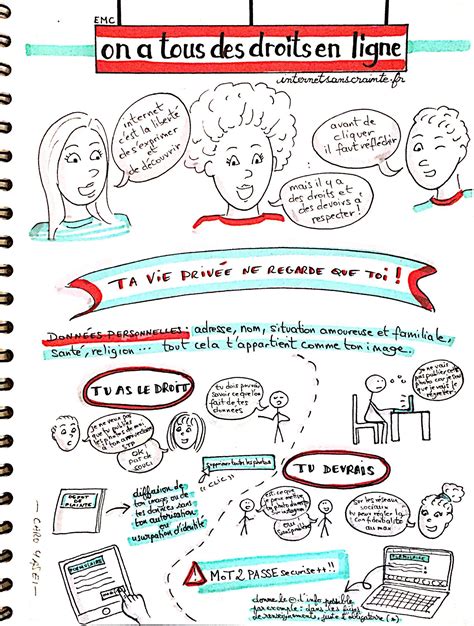 EMC
on a tous des droits en ligne
internetsanscrainte.fr
internet
c'est la liberté
de s'exprimer
et
de découvrir
mais il y a
des droits et
des devoirs à
respecter !
avant de
cliquer
il faut réfléchir
TA VIE PRIVÉE NE REGARDE QUE TOI !
DONNÉES PERSONNELLES : adresse, nom, situation amoureuse et familiale,
santé, religion ... tout cela t'appartient comme ton image..
TU AS LE DROIT
je ne veux pas
que tu publies
STP
OK,
pas de
souci
tu dois pouvoir
savoir ce que l'on
fait de tes
données
je ne vais
pas publier cette
photo car je sais
que je vais le
regretter
supprimer toutes les photos
"CLIC"
TU DEVRAIS
DEPOT DE
PLAINTE
diffusion de
ton image ou de
tes données sans
ton autorisation
ou
usurpation d'identité
est-ce que
je peux mettre
ta photo dans
oui
sur les réseaux
sociaux
tu peux régler ta
confidentialité
au max
CARO
FORMULAIRE
MOT 2 PASSE sécurisé ++ !!
FORMULAIRE
donne le moins d'info possible
par exemple : dans les fiches
de renseignements, juste l'obligatoire (*)